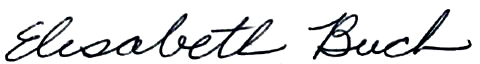 Elisabeth Buch